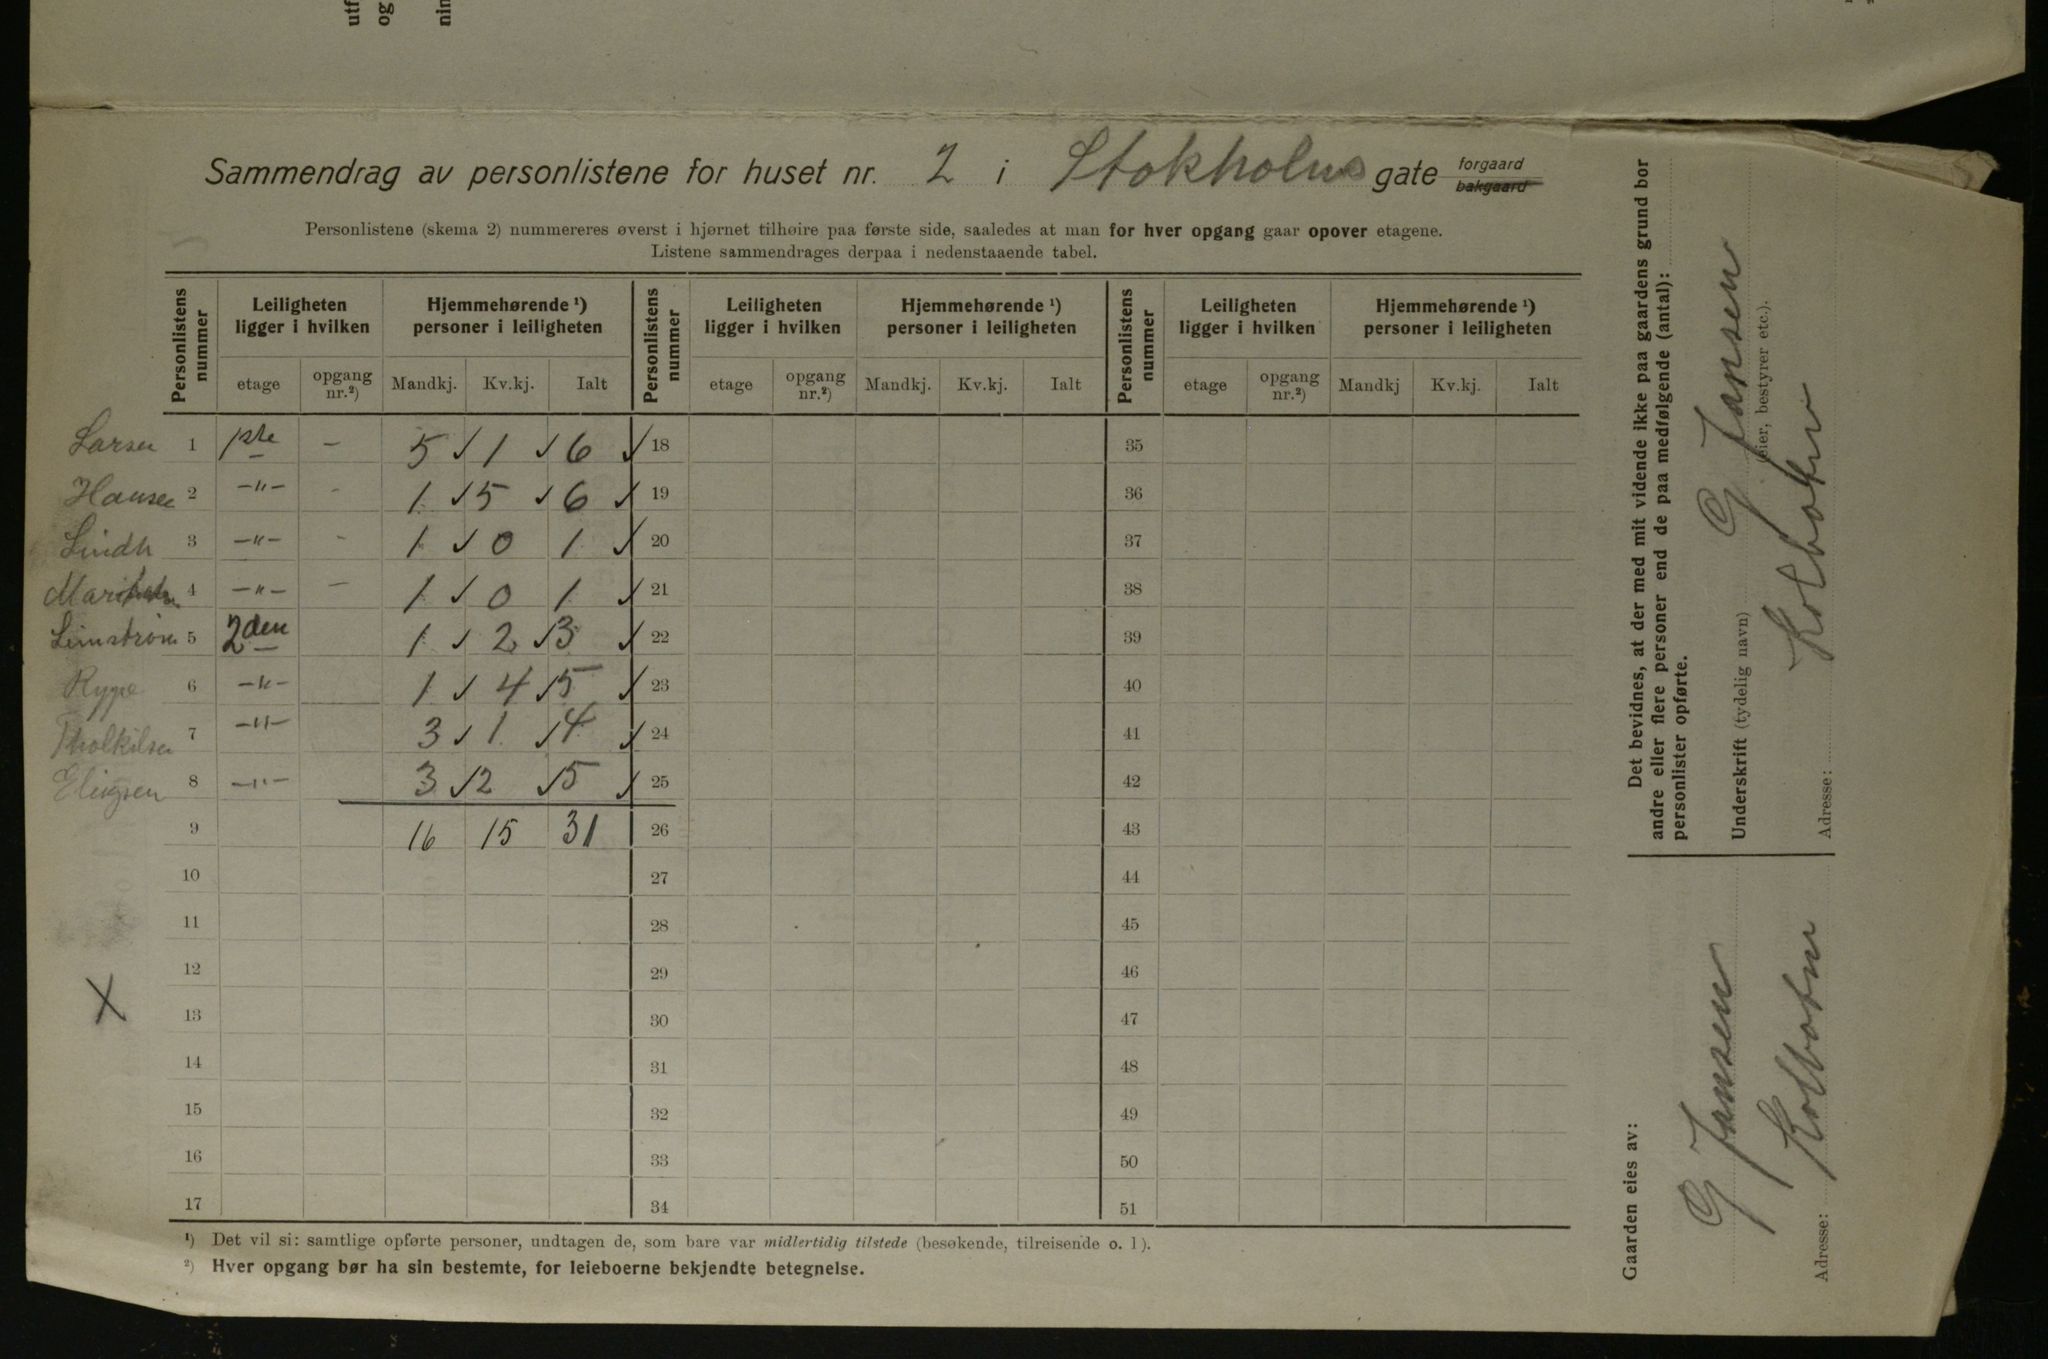 utf
og
nin
Sammendrag av personlistene for huset nr. 2 i Stokholms gate forgaard bakgaard
Personlistene (skema 2) nummereres øverst i hjørnet tilhøire paa første side, saaledes at man for hver opgang gaar opover etagene.
Listene sammendrages derpaa i nedenstaaende tabel.
Personlistens nummer | Leiligheten ligger i hvilken | Hjemmehørende ¹) personer i leiligheten | Personlistens nummer | Leiligheten ligger i hvilken | Hjemmehørende ¹) personer i leiligheten | Personlistens nummer | Leiligheten ligger i hvilken | Hjemmehørende ¹) personer i leiligheten
etage | opgang nr.²) | Mandkj. | Kv.kj. | Ialt | etage | opgang nr.²) | Mandkj. | Kv.kj. | Ialt | etage | opgang nr.²) | Mandkj | Kv.kj. | Ialt
Larsen 1 1ste – 5 ✓ 1 ✓ 6 ✓ 18 35
Hansen 2 –"– - 1 ✓ 5 ✓ 6 ✓ 19 36
Lindh 3 –"– - 1 ✓ 0 1 ✓ 20 37
4 –"– – 1 ✓ 0 1 ✓ 21 38
Limstrøm 5 2den 1 ✓ 2 ✓ 3 ✓ 22 39
Rype 6 –"– 1 ✓ 4 ✓ 5 ✓ 23 40
Tholkilsen 7 –"– 3 ✓ 1 ✓ 4 ✓ 24 41
8 –"– 3 ✓ 2 ✓ 5 ✓ 25 42
9 16 15 31 26 43
10 27 44
11 28 45
12 29 46
X
13 30 47
14 31 48
15 32 49
16 33 50
17 34 51
¹) Det vil si: samtlige opførte personer, undtagen de, som bare var midlertidig tilstede (besøkende, tilreisende o. l).
²) Hver opgang bør ha sin bestemte, for leieboerne bekjendte betegnelse.
Det bevidnes, at der med mit vidende ikke paa gaardens grund bor
andre eller flere personer end de paa medfølgende (antal):
personlister opførte.
Underskrift (tydelig navn) G Jansen
(eier, bestyrer etc.).
Adresse: Kolbotn
Gaarden eies av:
G Jansen
Adresse: Kolbotn